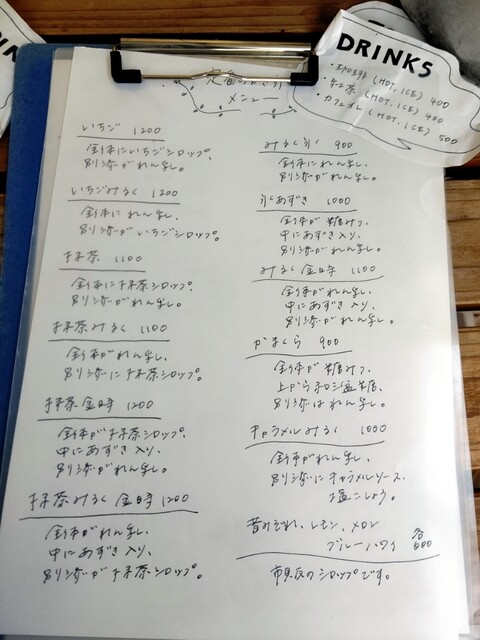 定番かき氷
メニュー
いちご 1200
全体にいちごシロップ、
別添がれん乳。
いちごみるく 1200
全体に れん乳、
別添が いちごシロップ。
抹茶 1100
全体に抹茶シロップ、
別添がれん乳。
抹茶みるく 1100
全体がれん乳、
別添に抹茶シロップ。
抹茶金時 1200
全体が抹茶シロップ、
中にあずき入り、
別添がれん乳。
抹茶みるく金時 1200
全体がれん乳、
中にあずき入り、
別添が抹茶シロップ。
みるく氷 900
全体にれん乳、
別添がれん乳。
氷あずき 1000
全体が糖みつ、
中にあずき入り、
別添がれん乳。
みるく金時 1100
全体がれん乳、
中にあずき入り、
別添がれん乳。
かまくら 900
全体が糖みつ、
上から和三盆糖、
別添はれん乳。
キャラメルみるく 1000
全体がれん乳、
別添にキャラメルソース、
塩こしょう。
昔みぞれ、レモン、メロン
ブルーハワイ 各800
市販のシロップです。
DRINKS
・珈琲 (HOT, ICE) 400
・紅茶 (HOT, ICE) 400
・カフェオレ (HOT, ICE) 500